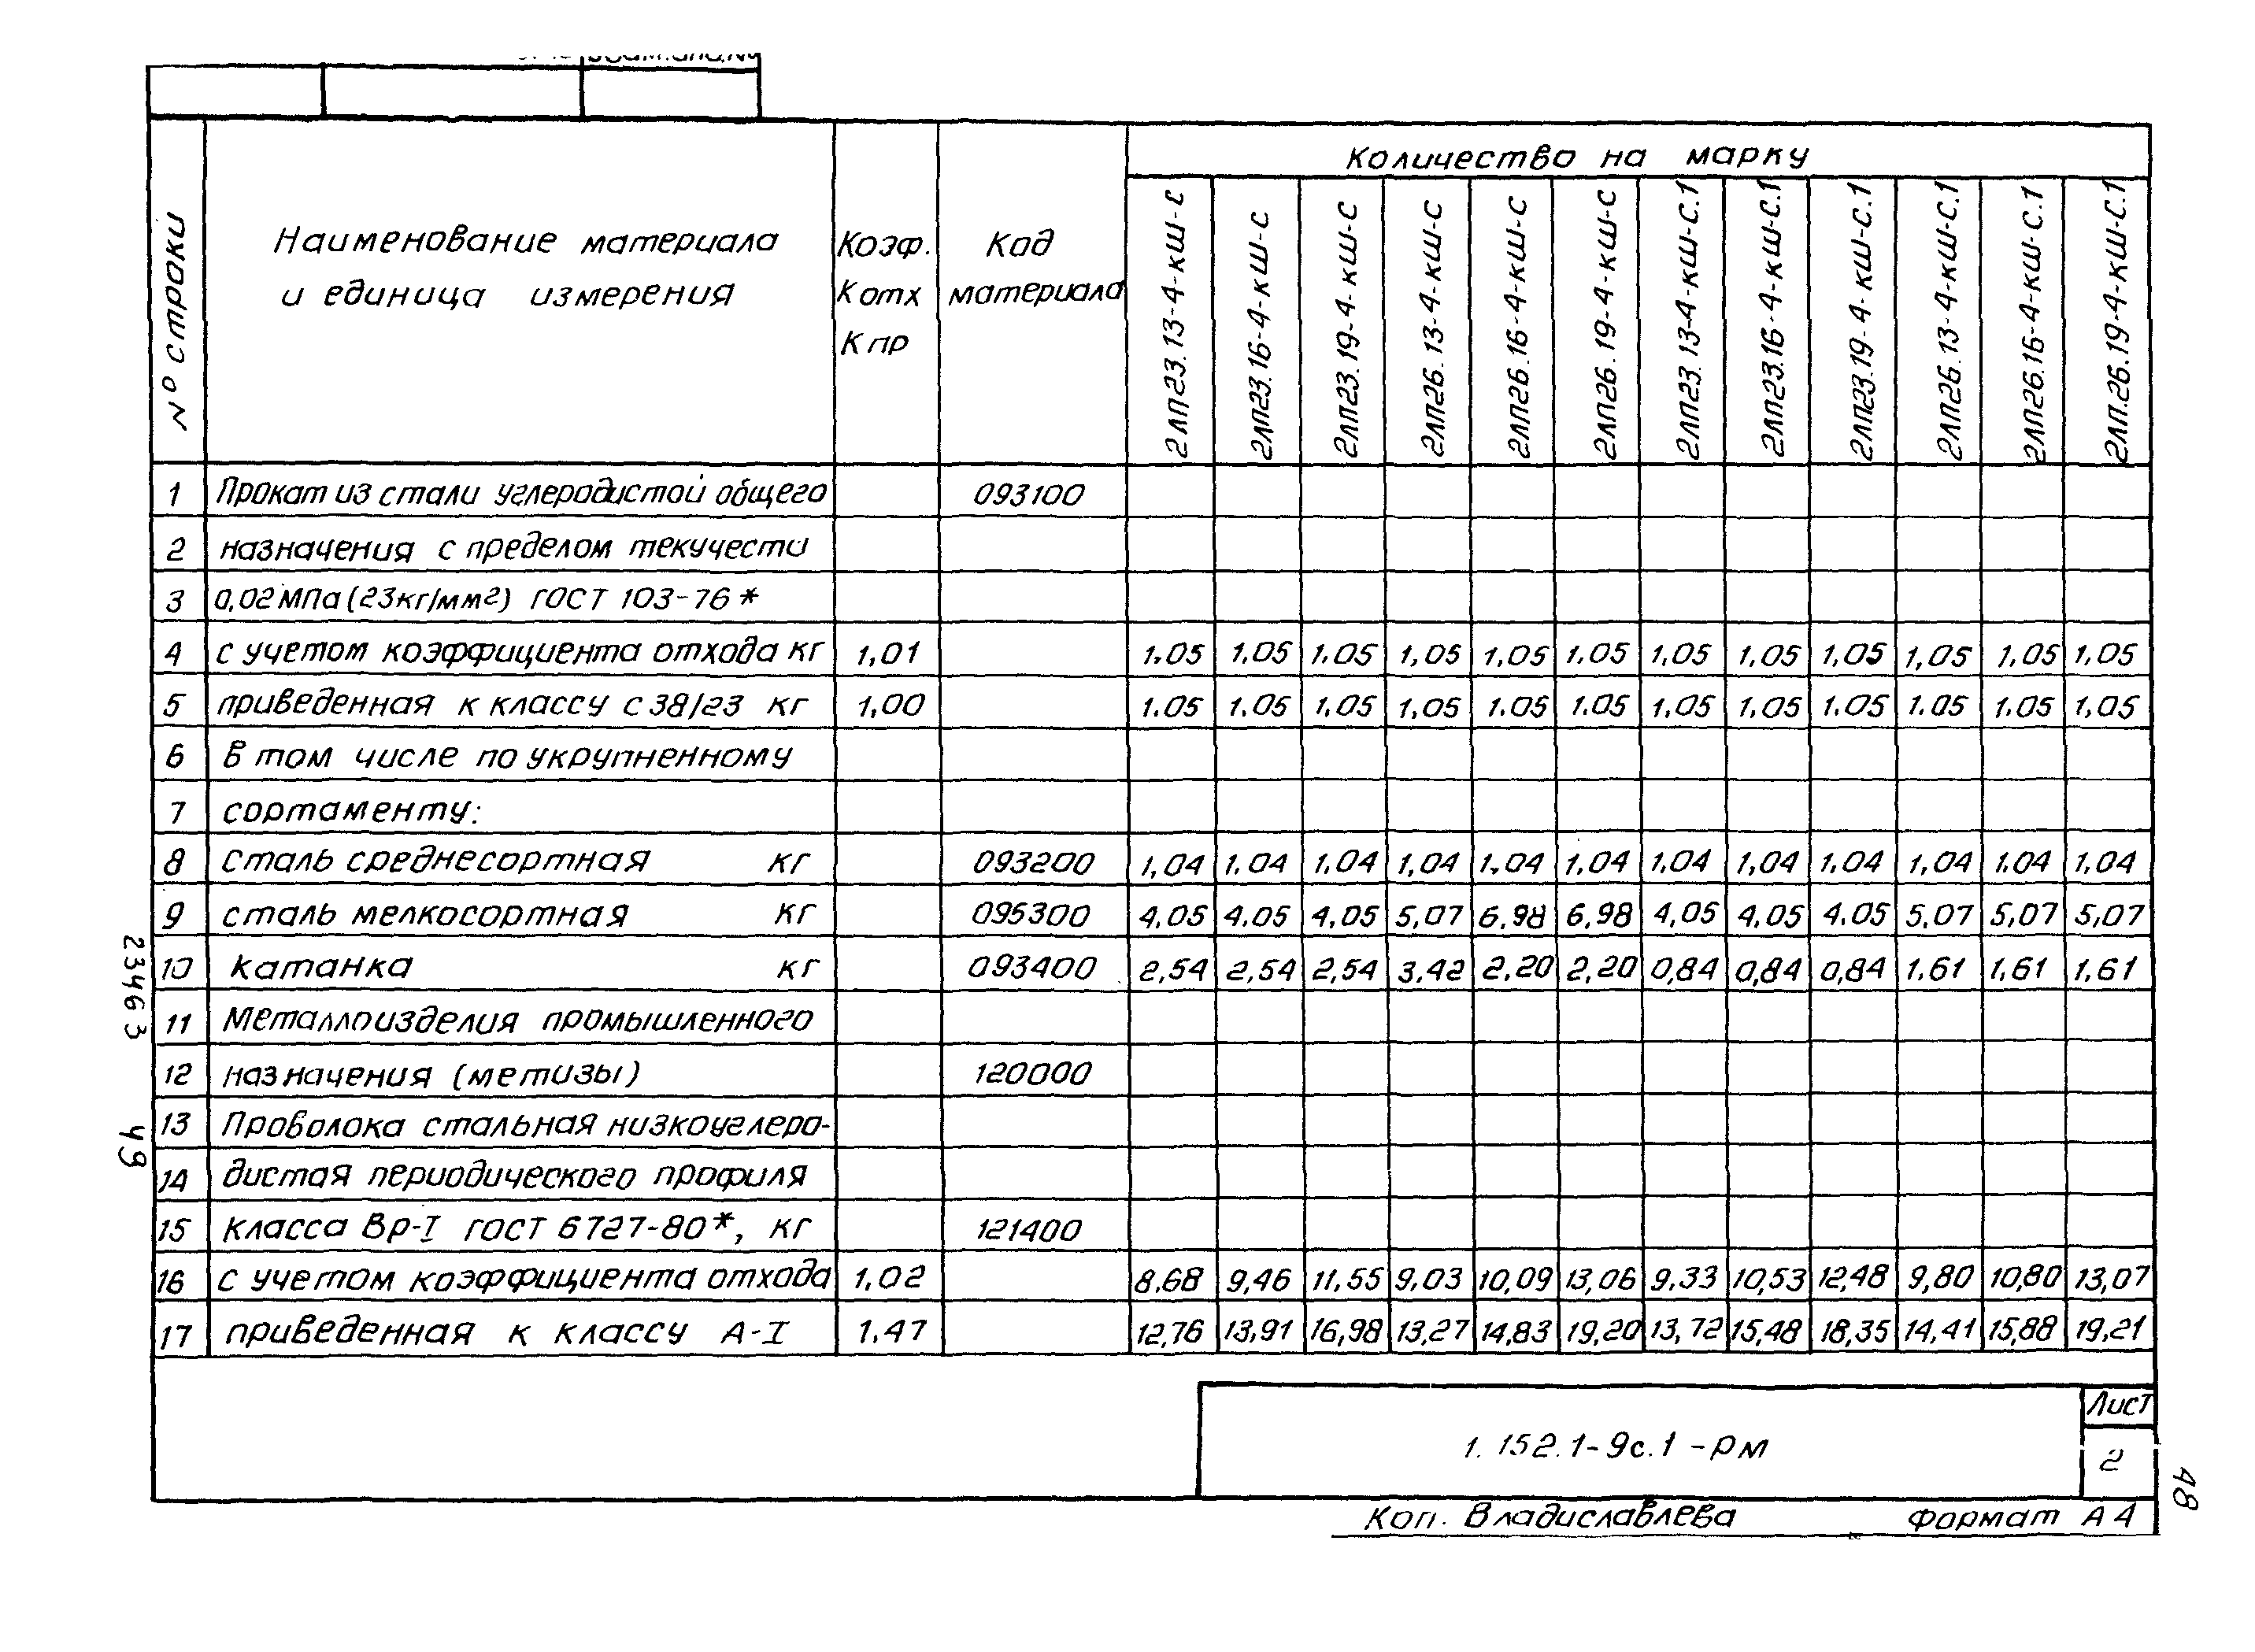 Количество на марку
№ строки
Наименование материала
и единица измерения
Коэф.
Котх
Кпр
Код
материала
2ЛП23.13-4-кш-с
2ЛП23.16-4-кш-с
2ЛП23.19-4-кш-с
2ЛП26.13-4-кш-с
2ЛП26.16-4-кш-с
2ЛП26.19-4-кш-с
2ЛП23.13-4-кш-с.1
2ЛП23.16-4-кш-с.1
2ЛП23.19-4-кш-с.1
2ЛП26.13-4-кш-с.1
2ЛП26.16-4-кш-с.1
2ЛП.26.19-4-кш-с.1
1 Прокат из стали углеродистой общего 093100
2 назначения с пределом текучести
3 0,02 МПа (23кг/мм2) ГОСТ 103-76*
4 с учетом коэффициента отхода кг 1,01 1.05 1.05 1.05 1,05 1,05 1.05 1,05 1,05 1,05 1,05 1,05 1,05
5 приведенная к классу с 38/23 кг 1,00 1.05 1.05 1,05 1,05 1.05 1.05 1,05 1,05 1.05 1.05 1.05 1,05
6 В том числе по укрупненному
7 сортаменту:
8 Сталь среднесортная кг 093200 1,04 1.04 1.04 1,04 1.04 1.04 1.04 1,04 1.04 1,04 1.04 1,04
9 сталь мелкосортная кг 095300 4,05 4.05 4,05 5,07 6.98 6,98 4,05 4,05 4.05 5,07 5,07 5,07
10 катанка кг 093400 2,54 2,54 2,54 3,42 2,20 2,20 0,84 0,84 0,84 1.61 1.61 1.61
11 Металлоизделия промышленного
12 назначения (метизы) 120000
13 Проволока стальная низкоуглеро-
14 дистая периодического профиля
15 класса Вр-I ГОСТ 6727-80*, кг 121400
16 с учетом коэффициента отхода 1,02 8.68 9,46 11,55 9,03 10,09 13,06 9,33 10,53 12,48 9,80 10,80 13,07
17 приведенная к классу А-I 1.47 12,76 13,91 16,98 13,27 14,83 19,20 13,72 15,48 18,35 14,41 15,88 19,21
23463 49
1.152.1-9с.1-рм
Лист
2
48
Коп. Владиславлева Формат А4